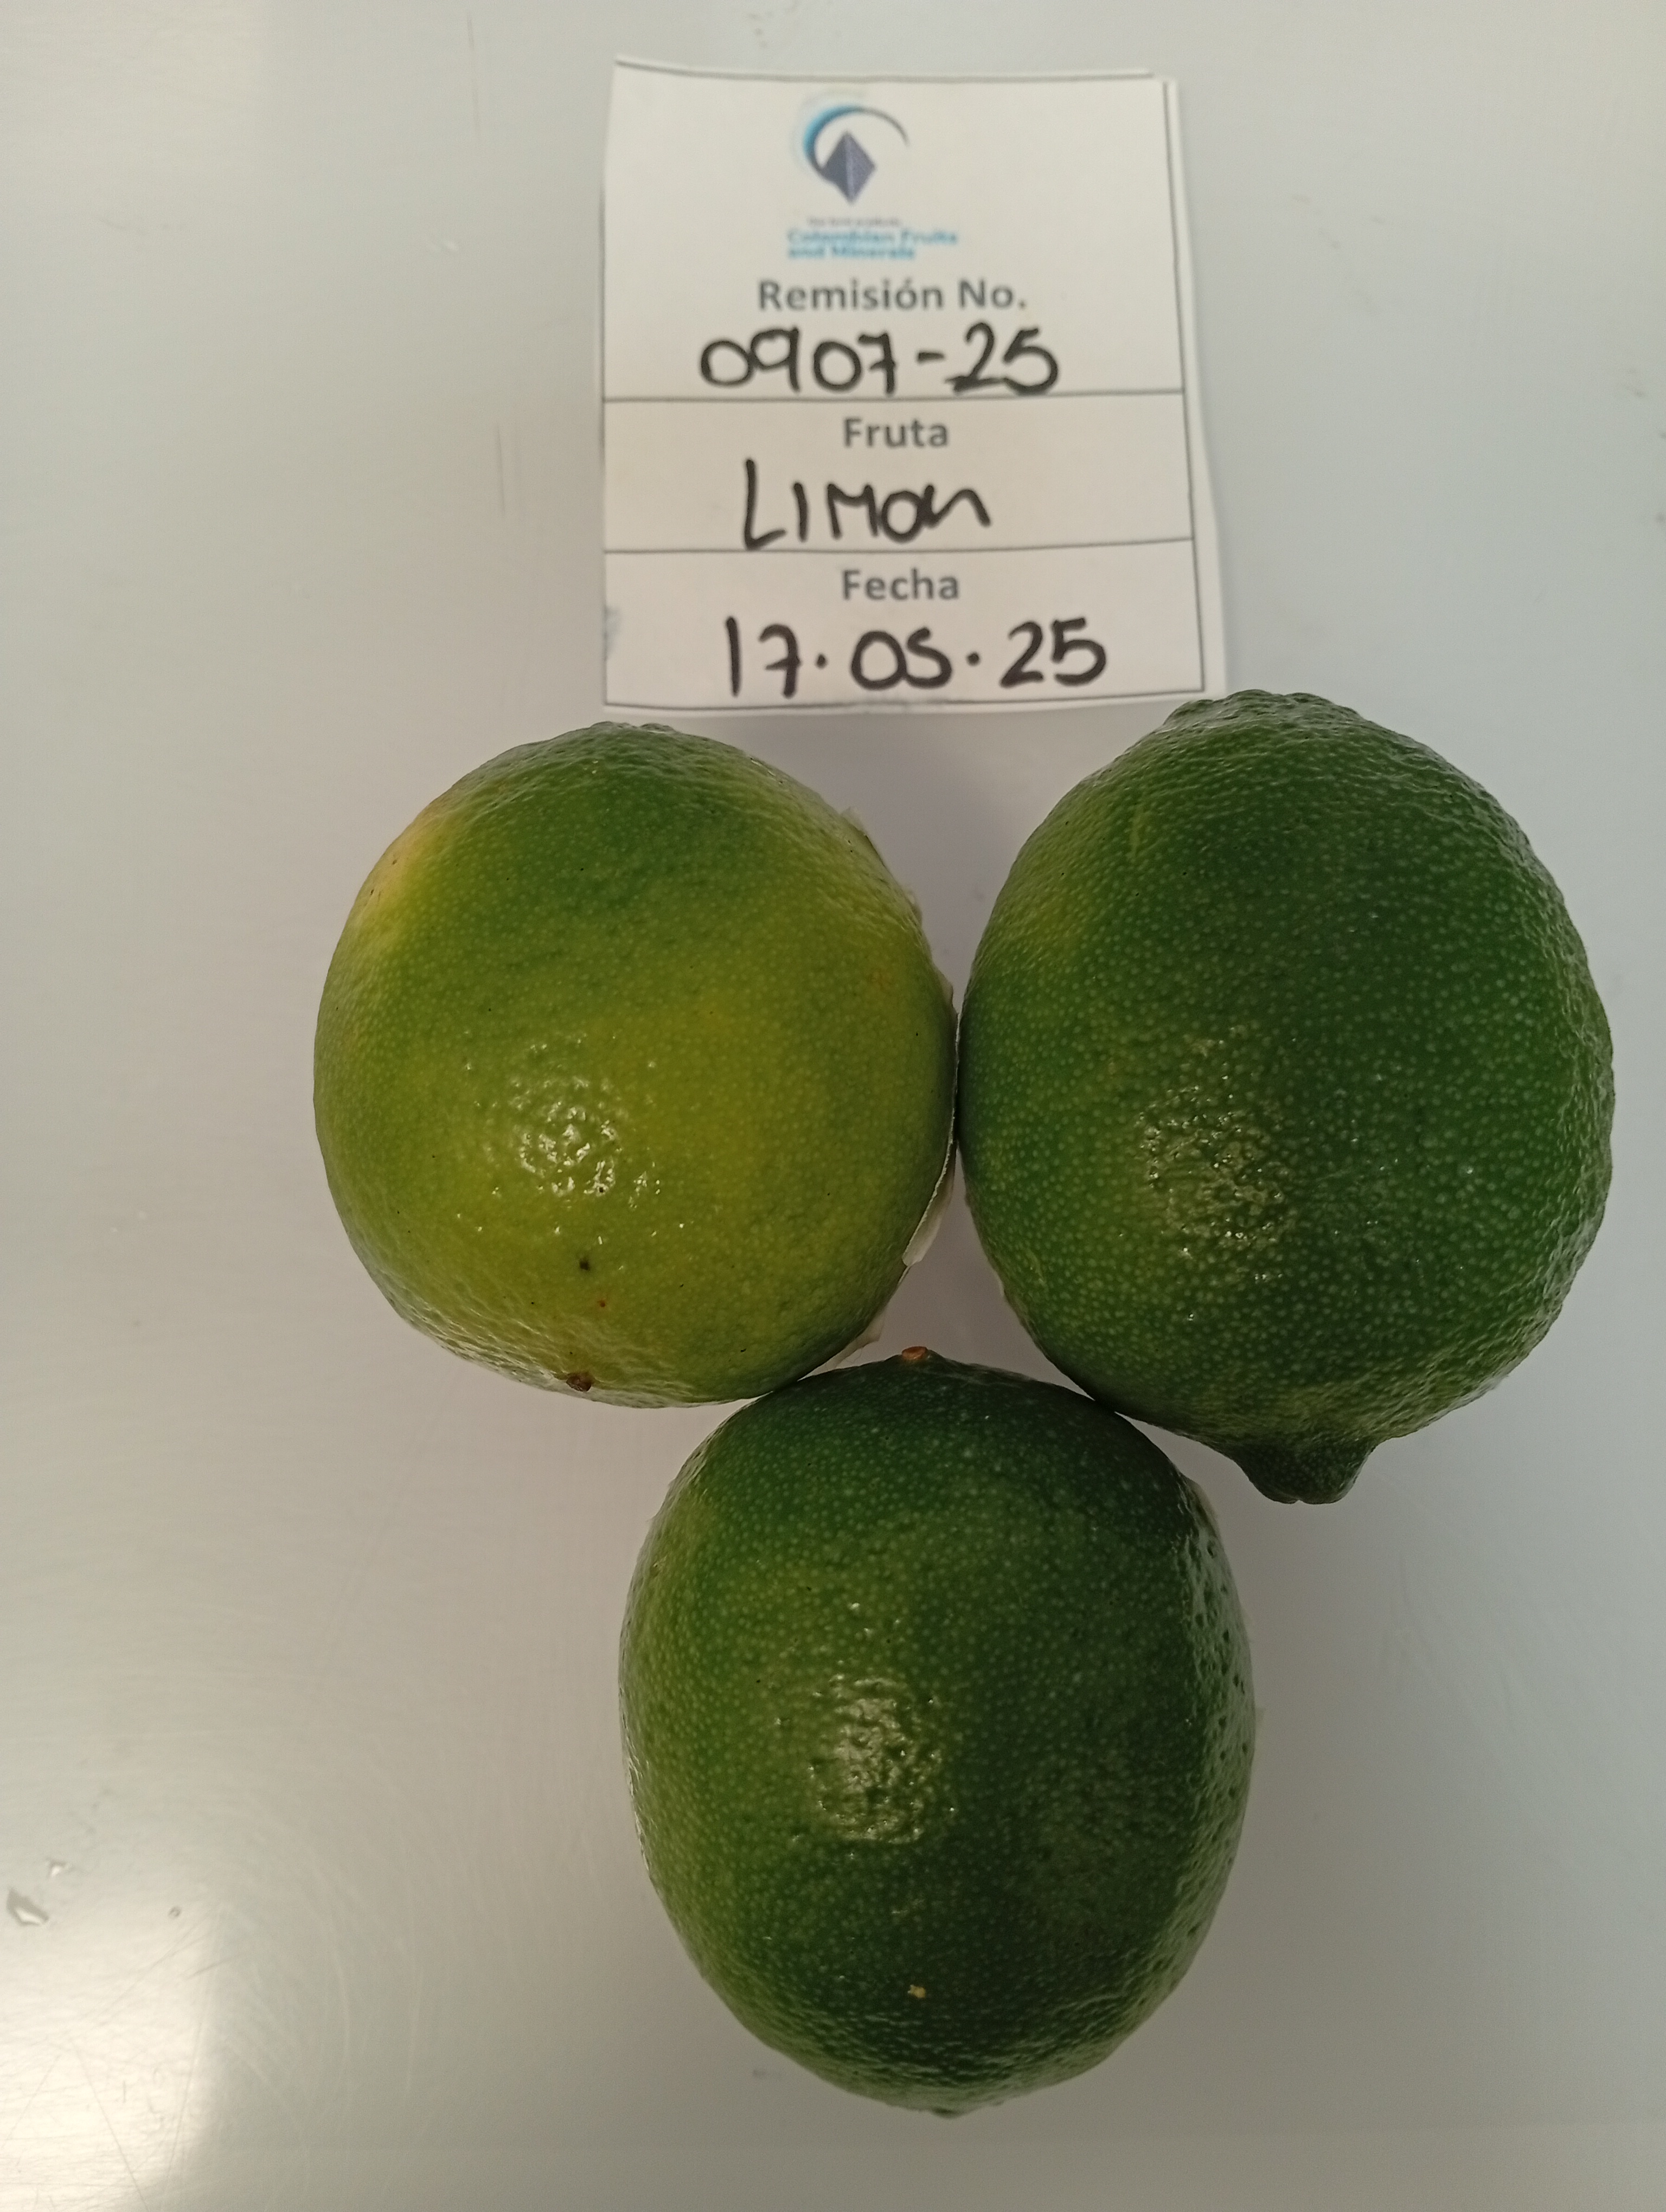 Colombian Fruits
and Minerals
Remisión No.
0907-25
Fruta
LIMON
Fecha
17.05.25